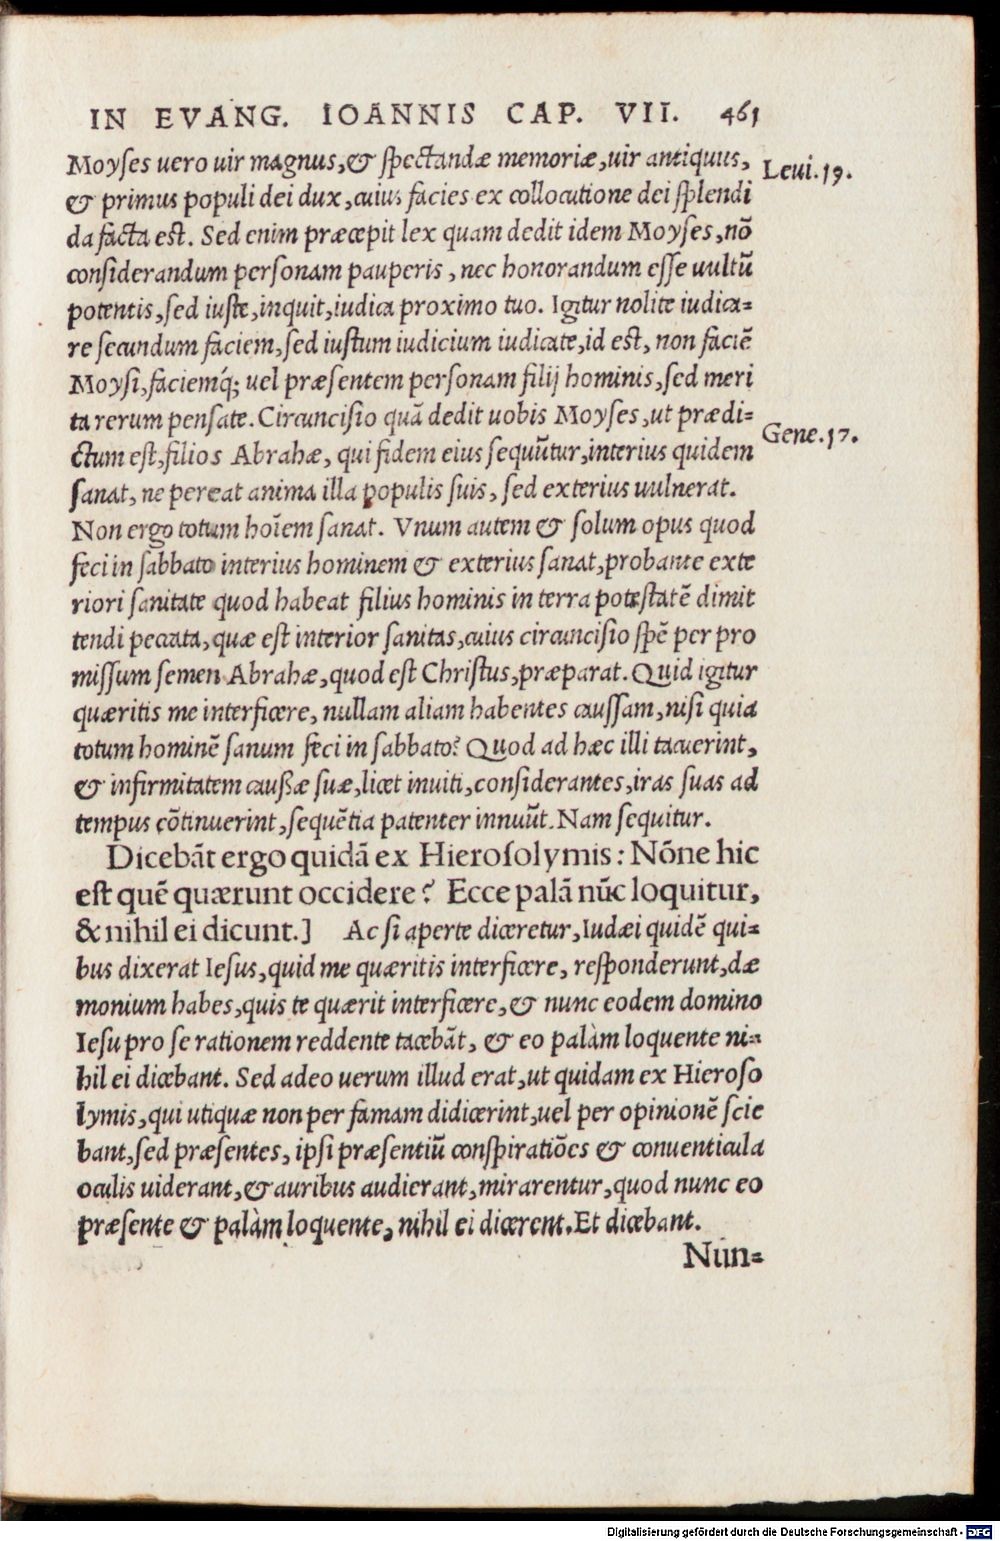 IN EVANG. IOANNIS CAP. VII. 461
Moyſes uero uir magnus, & ſpectandæ memoriæ, uir antiquus,
Leui. 19.
& primus populi dei dux, cuius facies ex collocutione dei ſplendi
da facta est. Sed enim præcepit lex quam dedit idem Moyſes, nō
conſiderandum perſonam pauperis, nec honorandum eſſe uultū
potentis, ſed iuſte, inquit, iudica proximo tuo. Igitur nolite iudica=
re ſecundum faciem, ſed iuſtum iudicium iudicate, id eſt, non faciē
Moyſi, faciemq́; uel præſentem perſonam filij hominis, ſed meri
ta rerum penſate. Circunciſio quā dedit uobis Moyſes, ut prædi=
Gene. 17.
ctum eſt, filios Abrahæ, qui fidem eius ſequūtur, interius quidem
ſanat, ne pereat anima illa populis ſuis, ſed exterius uulnerat.
Non ergo totum hoīem ſanat. Vnum autem & ſolum opus quod
feci in ſabbato interius hominem & exterius ſanat, probante exte
riori ſanitate quod habeat filius hominis in terra poteſtatē dimit
tendi peccata, quæ eſt interior ſanitas, cuius circunciſio ſpē per pro
miſſum ſemen Abrahæ, quod eſt Chriſtus, præparat. Quid igitur
quæritis me interficere, nullam aliam habentes cauſſam, niſi quia
totum hominē ſanum feci in ſabbato? Quod ad hæc illi tacuerint,
& infirmitatem cauſſæ ſuæ, licet inuiti, conſiderantes, iras ſuas ad
tempus cōtinuerint, ſequētia patenter innuūt. Nam ſequitur.
Dicebāt ergo quidā ex Hieroſolymis: Nōne hic
eſt quē quærunt occidere? Ecce palā nūc loquitur,
& nihil ei dicunt.] Ac ſi aperte diceretur, Iudæi quidē qui=
bus dixerat Ieſus, quid me quæritis interficere, reſponderunt, dæ
monium habes, quis te quærit interficere, & nunc eodem domino
Ieſu pro ſe rationem reddente tacebāt, & eo palàm loquente ni=
hil ei dicebant. Sed adeo uerum illud erat, ut quidam ex Hieroſo
lymis, qui utiquæ non per famam didicerint, uel per opinionē ſcie
bant, ſed præſentes, ipſi præſentiū conſpiratiōes & conuenticula
oculis uiderant, & auribus audierant, mirarentur, quod nunc eo
præſente & palàm loquente, nihil ei dicerent. Et dicebant.
Nun=
Digitalisierung gefördert durch die Deutsche Forschungsgemeinschaft - DFG